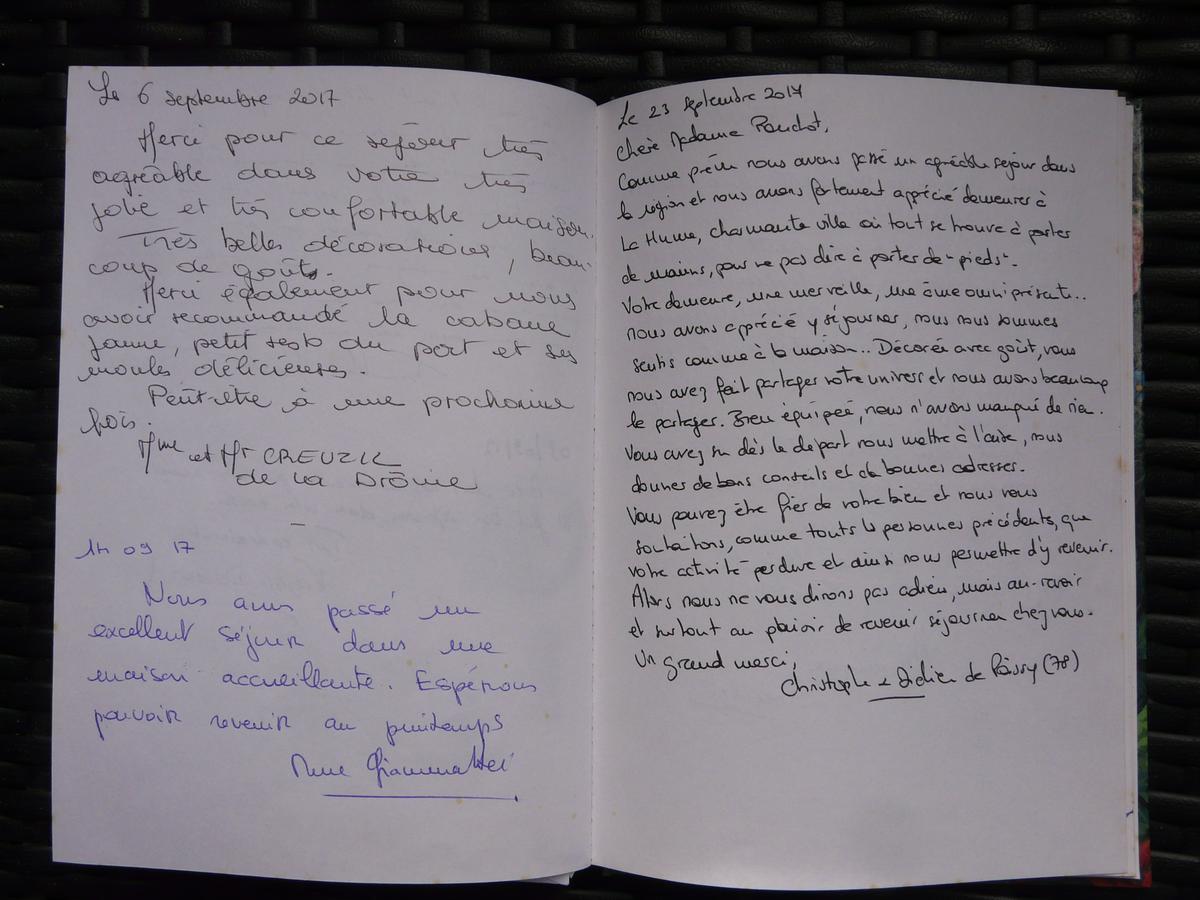 Le 6 septembre 2017
Merci pour ce séjour très
agréable dans votre très
jolie et très confortable maison.
Très belles décorations, beau-
coup de goûts.
Merci également pour nous
avoir recommandé la cabane
jaune, petit resto du port et ses
moules délicieuses.
Peut-être à une prochaine
fois.
Mme et Mr CREUZIL
de la Drôme
14 09 17
Nous avons passé un
excellent séjour dans une
maison accueillante. Espérons
pouvoir revenir au printemps
Mme
Le 23 septembre 2017
Chère Madame
Comme prévu nous avons passé un agréable séjour dans
la région et nous avons fortement apprécié demeurer à
La Hume, charmante ville où tout se trouve à portes
de mains, pour ne pas dire à portes de "pieds".
Votre demeure, une merveille, une âme omniprésente...
nous avons apprécié y séjourner, nous nous sommes
sentis comme à la maison... Décorée avec goût, vous
nous avez fait partager votre univers et nous avons beaucoup
le partager. Bien équipée, nous n'avons manqué de rien.
Vous avez su dès le départ nous mettre à l'aise, nous
donner de bons conseils et de bonnes adresses.
Vous pouvez être fier de votre bien et nous vous
souhaitons, comme touts le personnes précédents, que
votre activité perdure et ainsi nous permettre d'y revenir.
Alors nous ne vous dirons pas adieu, mais au-revoir
et surtout au plaisir de revenir séjourner chez vous.
Un grand merci,
Christophe & Didier de Poissy (78)